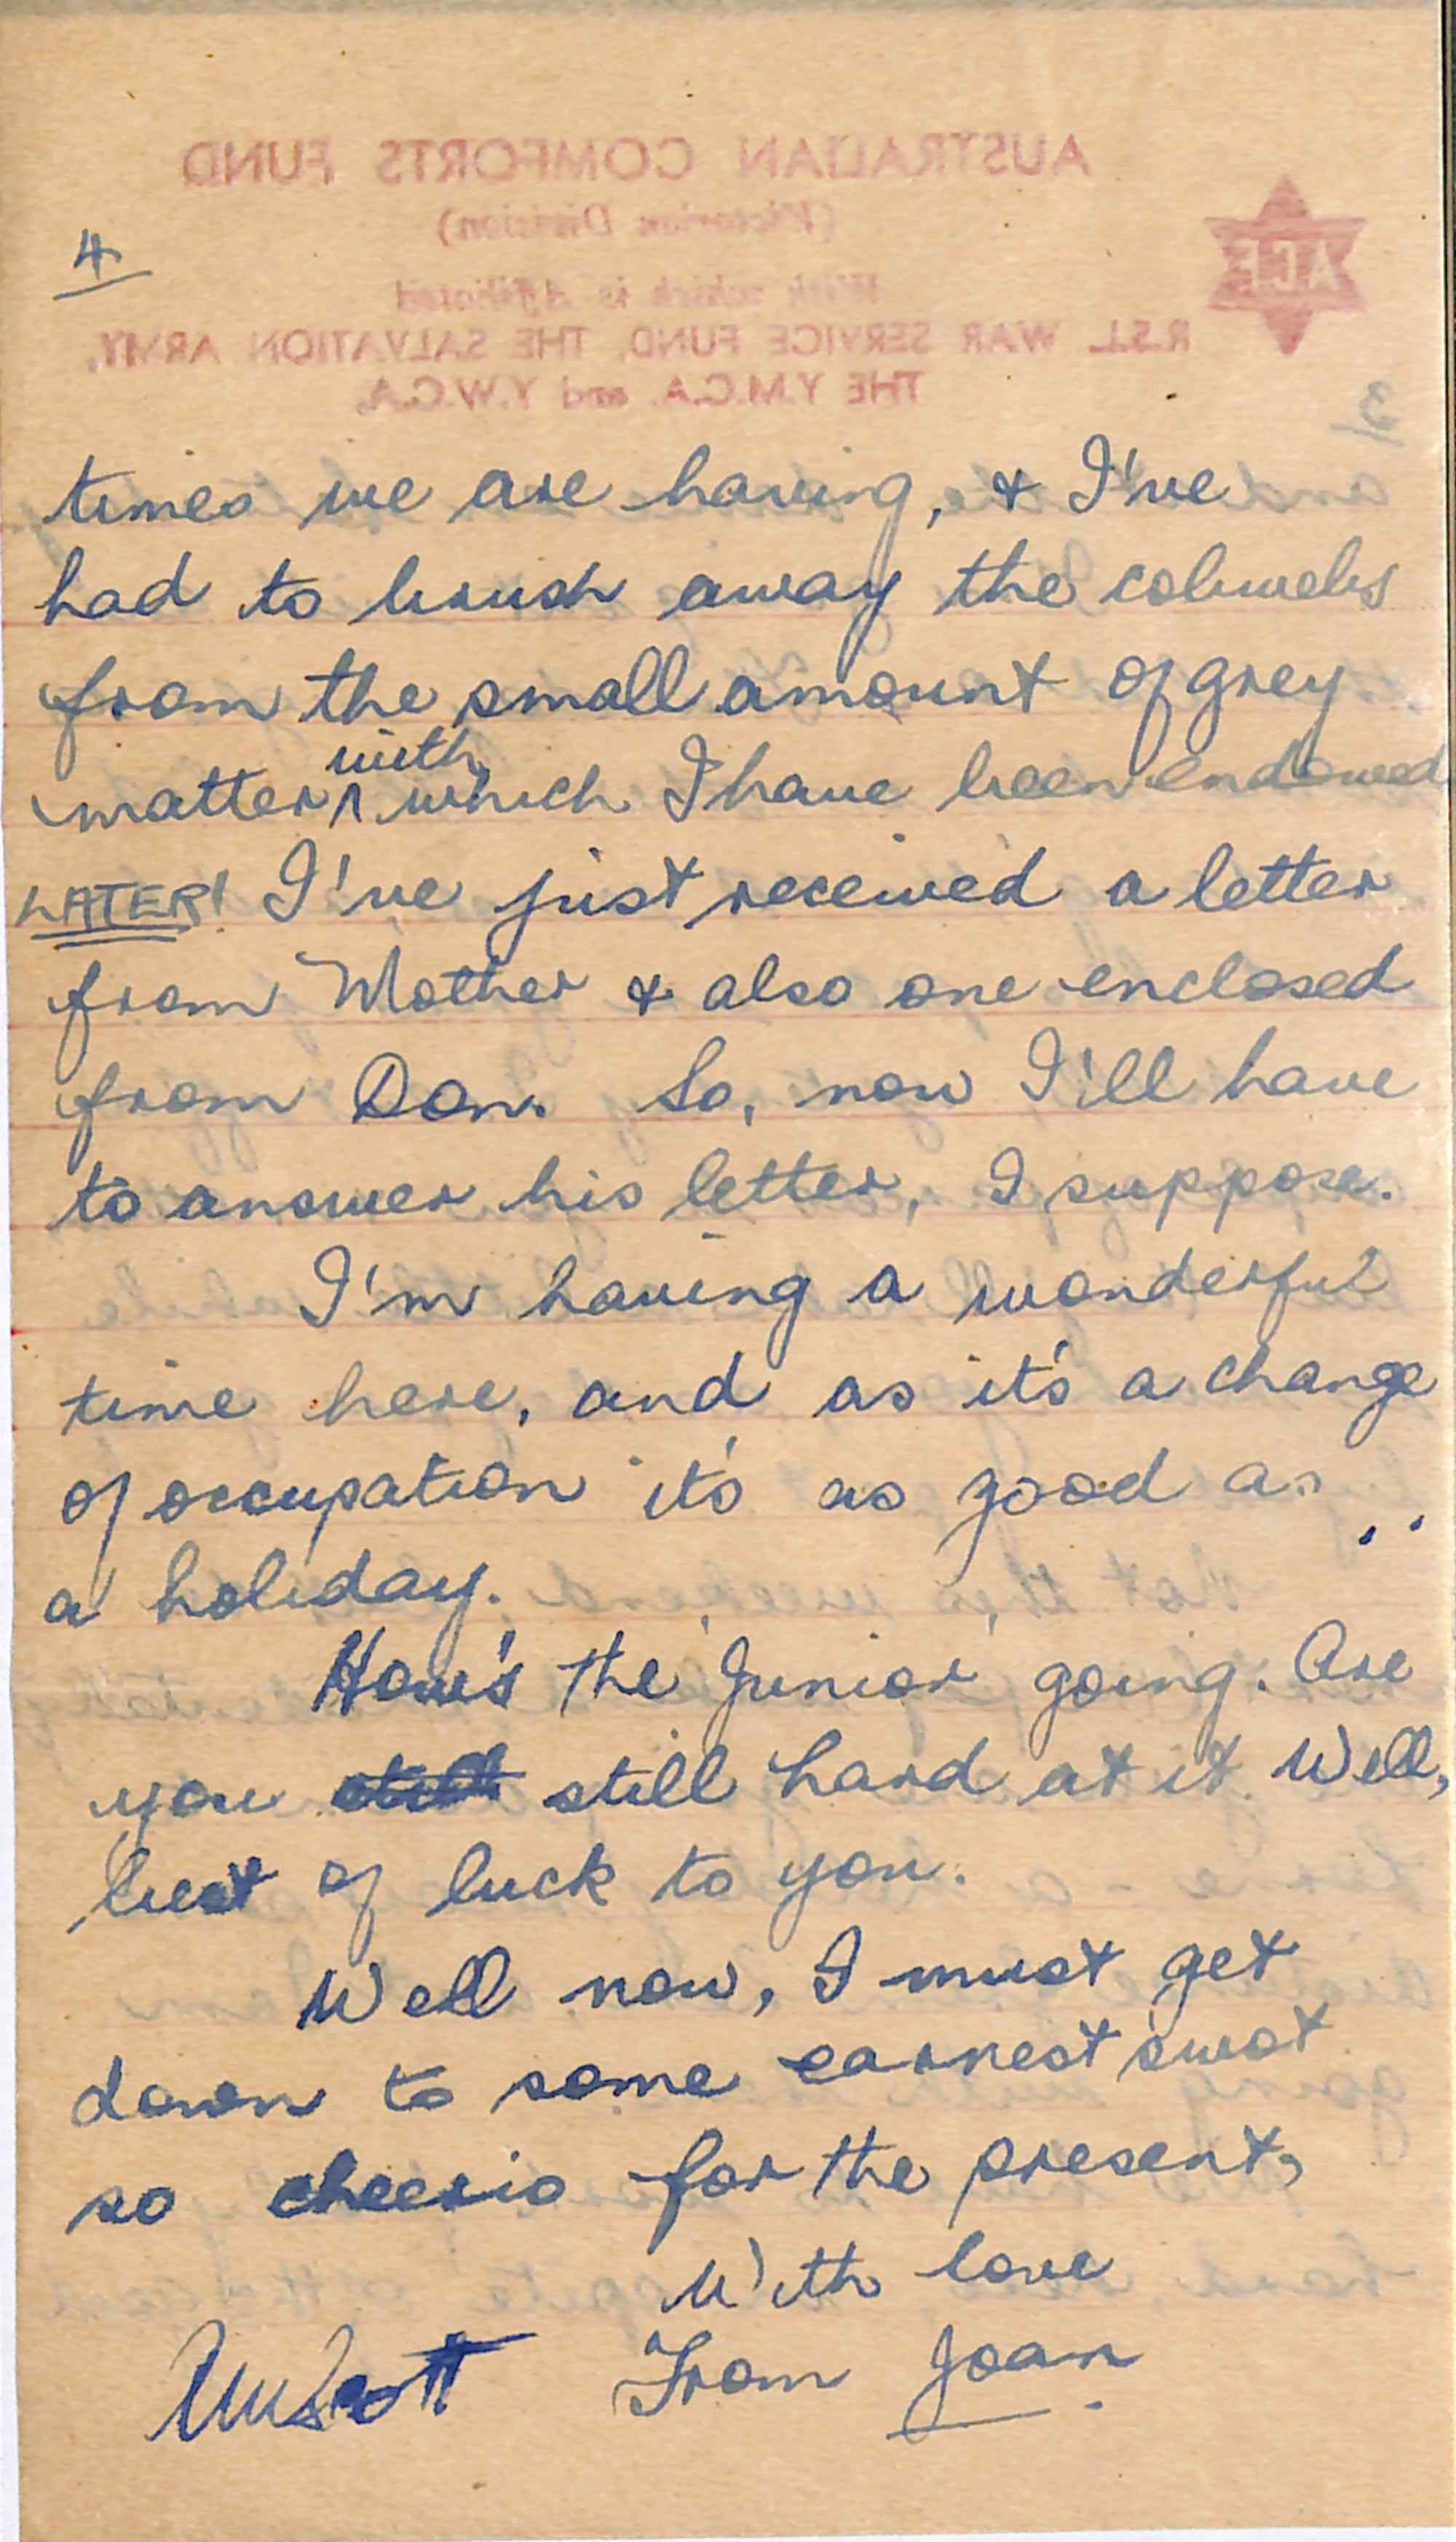 4
AUSTRALIAN COMFORTS FUND
(Victorian Division)
With which is Affiliated
R.S.L. WAR SERVICE FUND, THE SALVATION ARMY,
THE Y.M.C.A. and Y.W.C.A.
ACF
3
times we are having, & I've
had to brush away the cobwebs
from the small amount of grey
matter with which I have been endowed
LATER! I've just received a letter
from Mother & also one enclosed
from Don. So, now I'll have
to answer his letter, I suppose.
I'm having a wonderful
time here, and as it's a change
of occupation it's as good as
a holiday.
How's the 'Junior' going. Are
you still still hard at it. Well,
best of luck to you.
Well now, I must get
down to some earnest swot
so cheerio for the present,
With love
From Joan